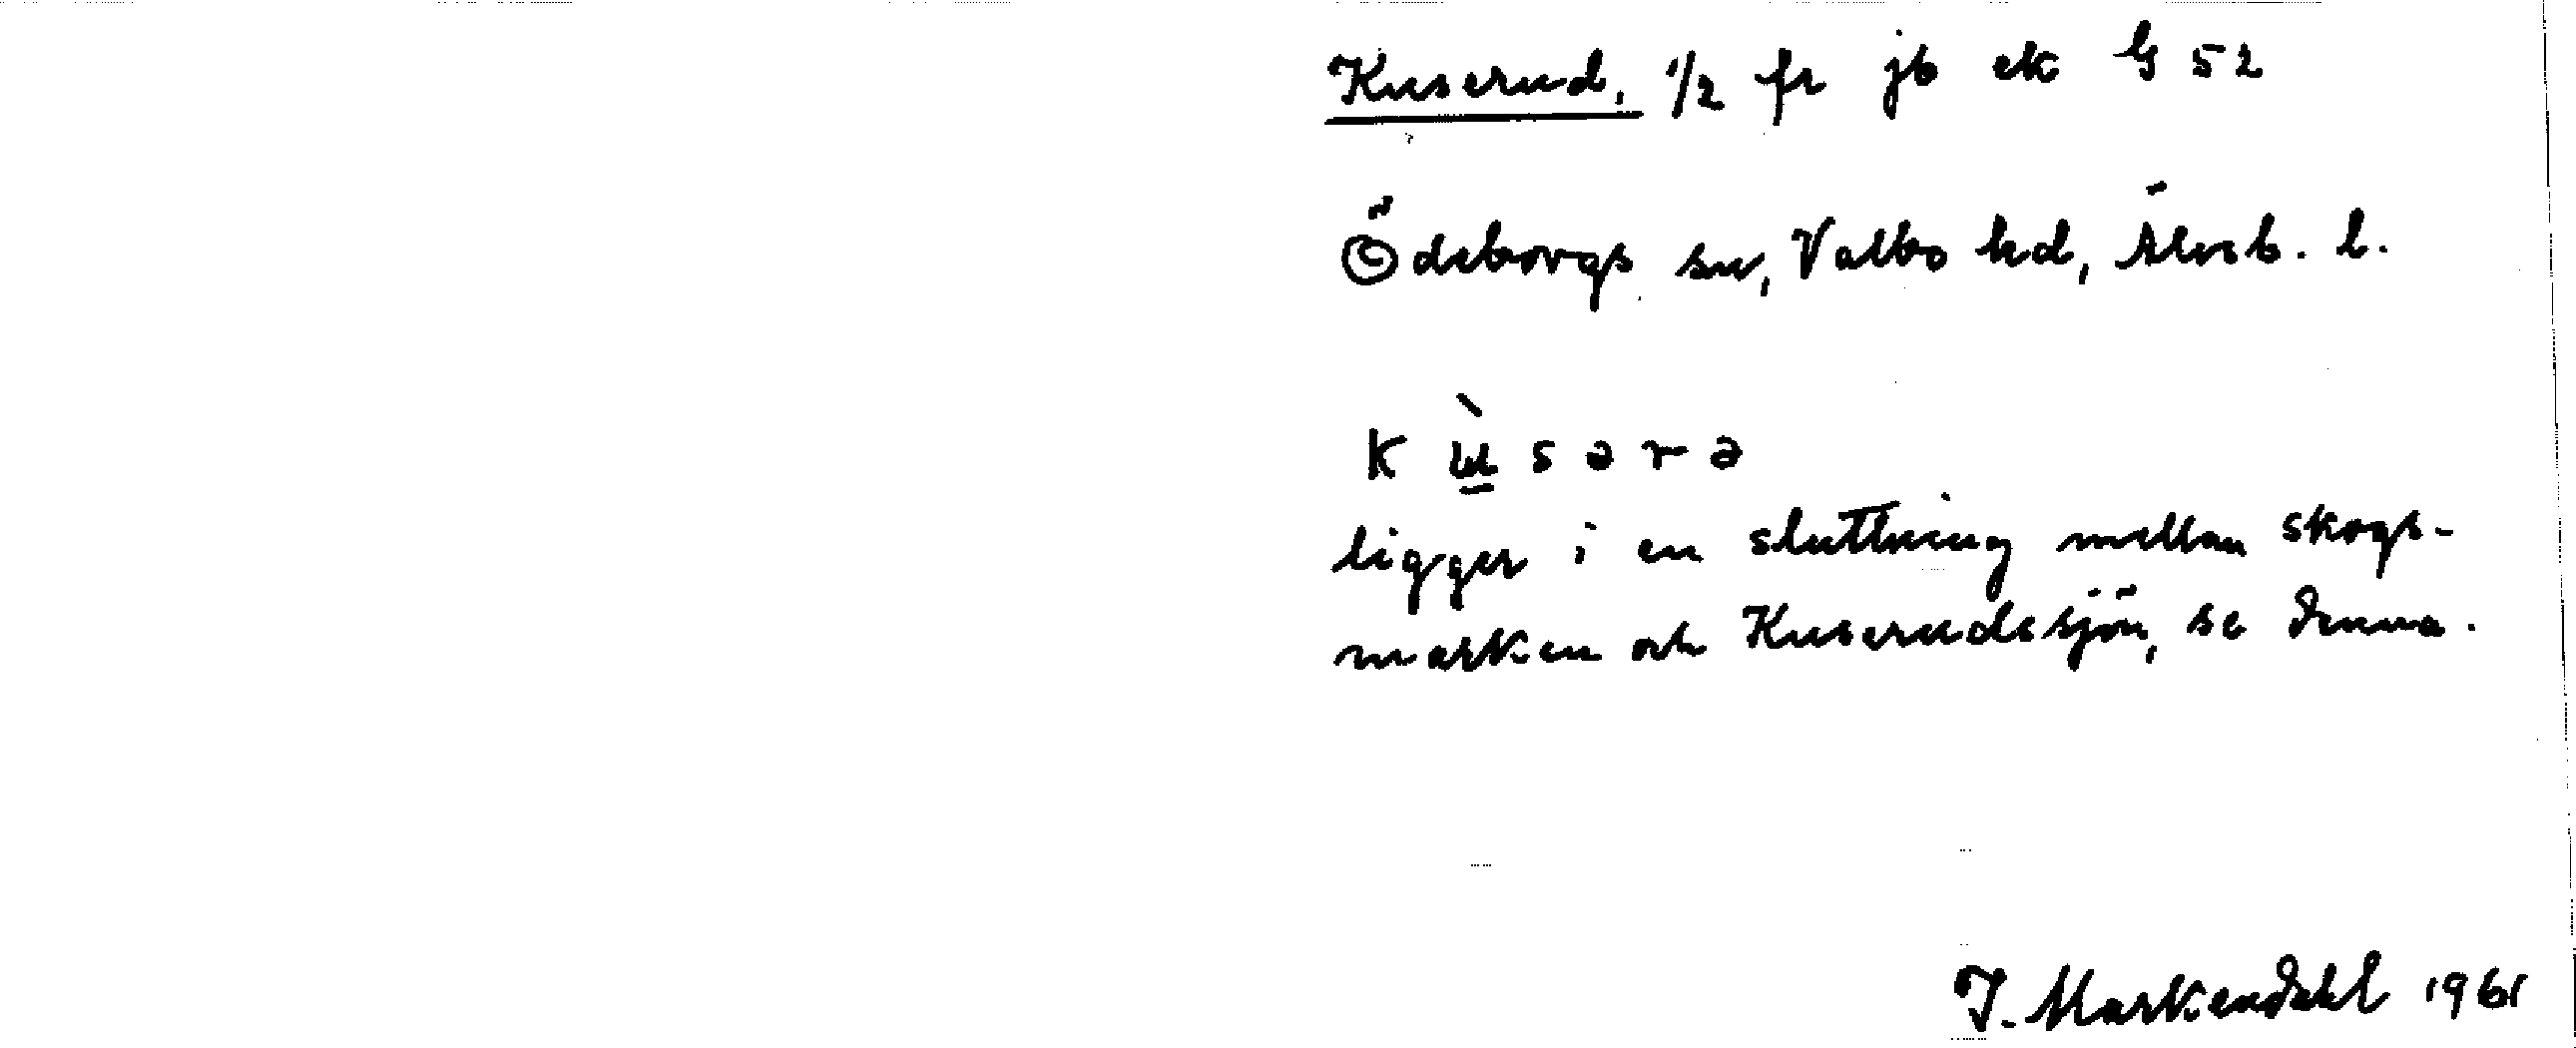 Kuserud, 1/2 fr jb ek G 52
Ödeborgs sn, Valbo hd, Älvsb. l.
k ù̱ s ə r ə
ligger i en sluttning mellan skogs-
marken och Kuserudssjön, se denna.
J. Markendahl 1961